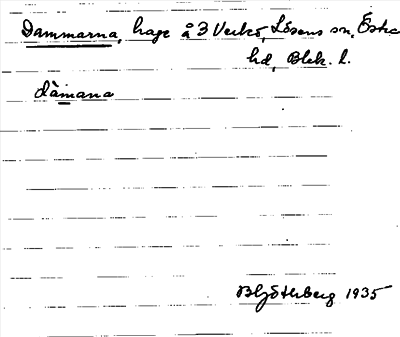 Dammarna, hage å 3 Verkö, Lösens sn, Östra
hd, Blek. l.
dàmana
Göthberg 1935